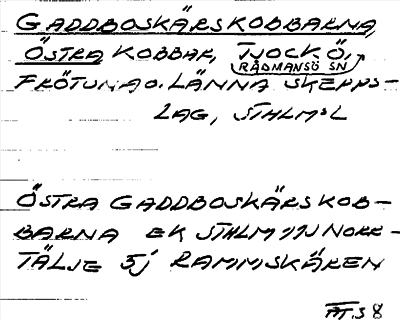 GADDBOSKÄRSKOBBARNA,
ÖSTRA KOBBAR, TJOCKÖ,
RÅDMANSÖ SN
FRÖTUNA O. LÄNNA SKEPPS-
LAG, STHLM:S L
ÖSTRA GADDBOSKÄRSKOB-
BARNA EK STHLM 1 IN NORR-
TÄLJE 5j RAMMSKÄREN
S 8